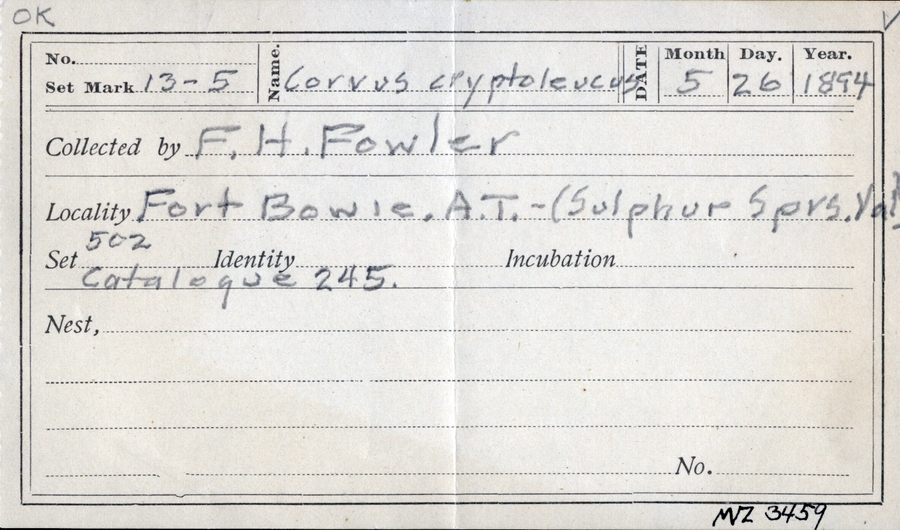 OK
No. Name. Corvus cryptoleucus DATE Month Day. Year.
Set Mark 13-5 5 26 1894
Collected by F. H. Fowler
Locality Fort Bowie, A.T. - (Sulphur Sprs. Val
502
Set Identity Incubation
Catalogue 245.
Nest,
No.
MVZ 3459